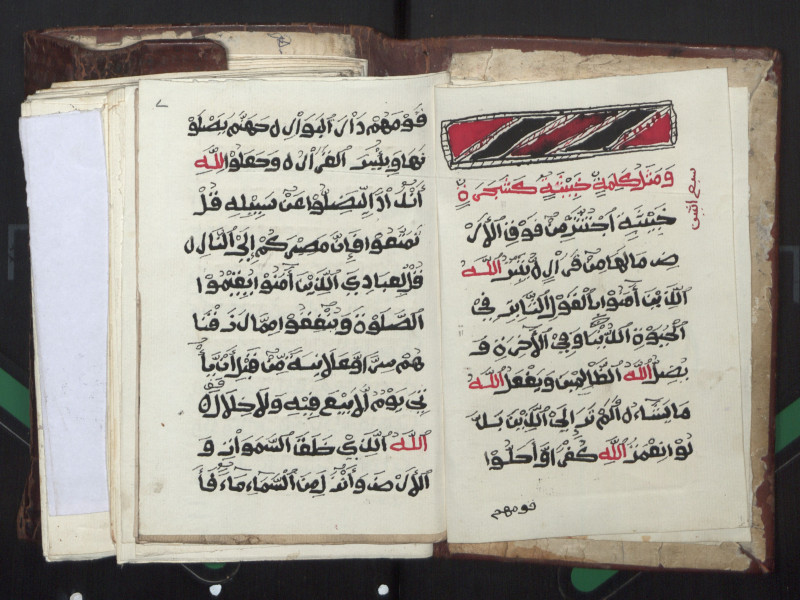 وَمَثَلُ كَلِمَةٍ خَبِيثَةٍ كَشَجَرَةٍ
خَبِيثَةٍ اجْتُثَّتْ مِن فَوْقِ الْأَرْ
ضِ مَا لَهَا مِن قَرَارٍ ٥ يُثَبِّتُ اللَّهُ
الَّذِينَ آمَنُوا بِالْقَوْلِ الثَّابِتِ فِي
الْحَيَوٰةِ الدُّنْيَا وَفِي الْآخِرَةِ وَ
يُضِلُّ اللَّهُ الظَّالِمِينَ وَيَفْعَلُ اللَّهُ
مَا يَشَاءُ ٥ أَلَمْ تَرَ إِلَى الَّذِينَ بَدَّ
لُوا نِعْمَتَ اللَّهِ كُفْرًا وَأَحَلُّوا
قومهم
قَوْمَهُمْ دَارَ الْبَوَارِ ٥ جَهَنَّمَ يَصْلَوْ
نَهَا وَبِئْسَ الْقَرَارُ ٥ وَجَعَلُوا لِلَّهِ
أَندَادًا لِّيُضِلُّوا عَن سَبِيلِهِ قُلْ
تَمَتَّعُوا فَإِنَّ مَصِيرَكُمْ إِلَى النَّارِ ٥
قُل لِّعِبَادِيَ الَّذِينَ آمَنُوا يُقِيمُوا
الصَّلَوٰةَ وَيُنفِقُوا مِمَّا رَزَقْنَا
هُمْ سِرًّا وَعَلَانِيَةً مِّن قَبْلِ أَن يَأْ
تِيَ يَوْمٌ لَّا بَيْعٌ فِيهِ وَلَا خِلَالٌ ٥
اللَّهُ الَّذِي خَلَقَ السَّمَوَاتِ وَ
الْأَرْضَ وَأَنزَلَ مِنَ السَّمَاءِ مَاءً فَأَ